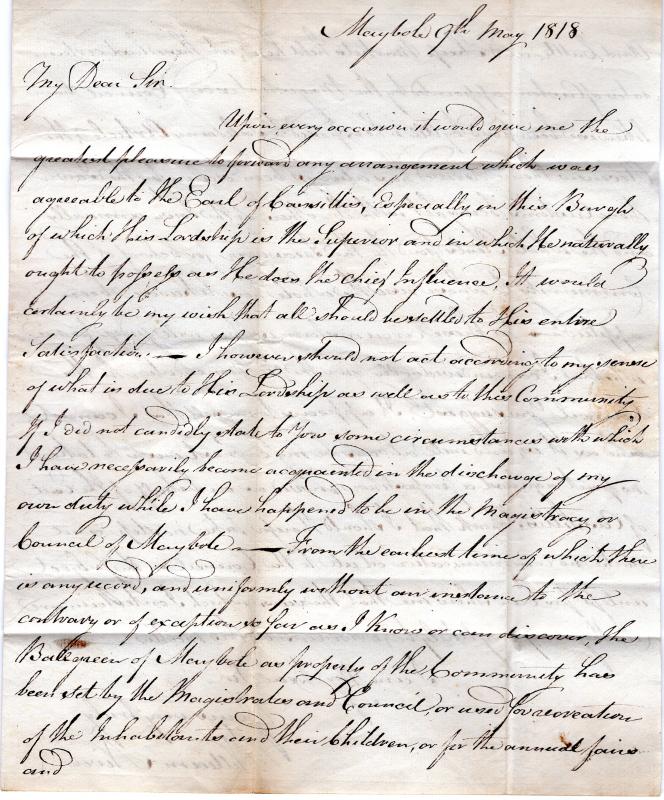 Maybole 9th May 1818
My Dear Sir.
Upon every occasion it would give me the
greatest pleasure to forward any arrangement which was
agreeable to the Earl of Cassillis, Especially in this Burgh
of which His Lordship is the Superior and in which He naturally
ought to possess as He does the chief Influence, It would
certainly be my wish that all should be settled to His entire
Satisfaction — I however should not act according to my sense
of what is due to His Lordship as well as to this Community
if I did not candidly state to You some circumstances with which
I have necessarily become acquainted in the discharge of my
own duty while I have happened to be in the Magistracy or
Council of Maybole — From the earliest time of which there
is any record, and uniformly without an instance to the
contrary or of exception so far as I Know or can discover, the
Ballgreen of Maybole as property of the Community has
been set by the Magistrates and Council, or used for recreation
of the Inhabitants and their Children, or for the annual fairs
and